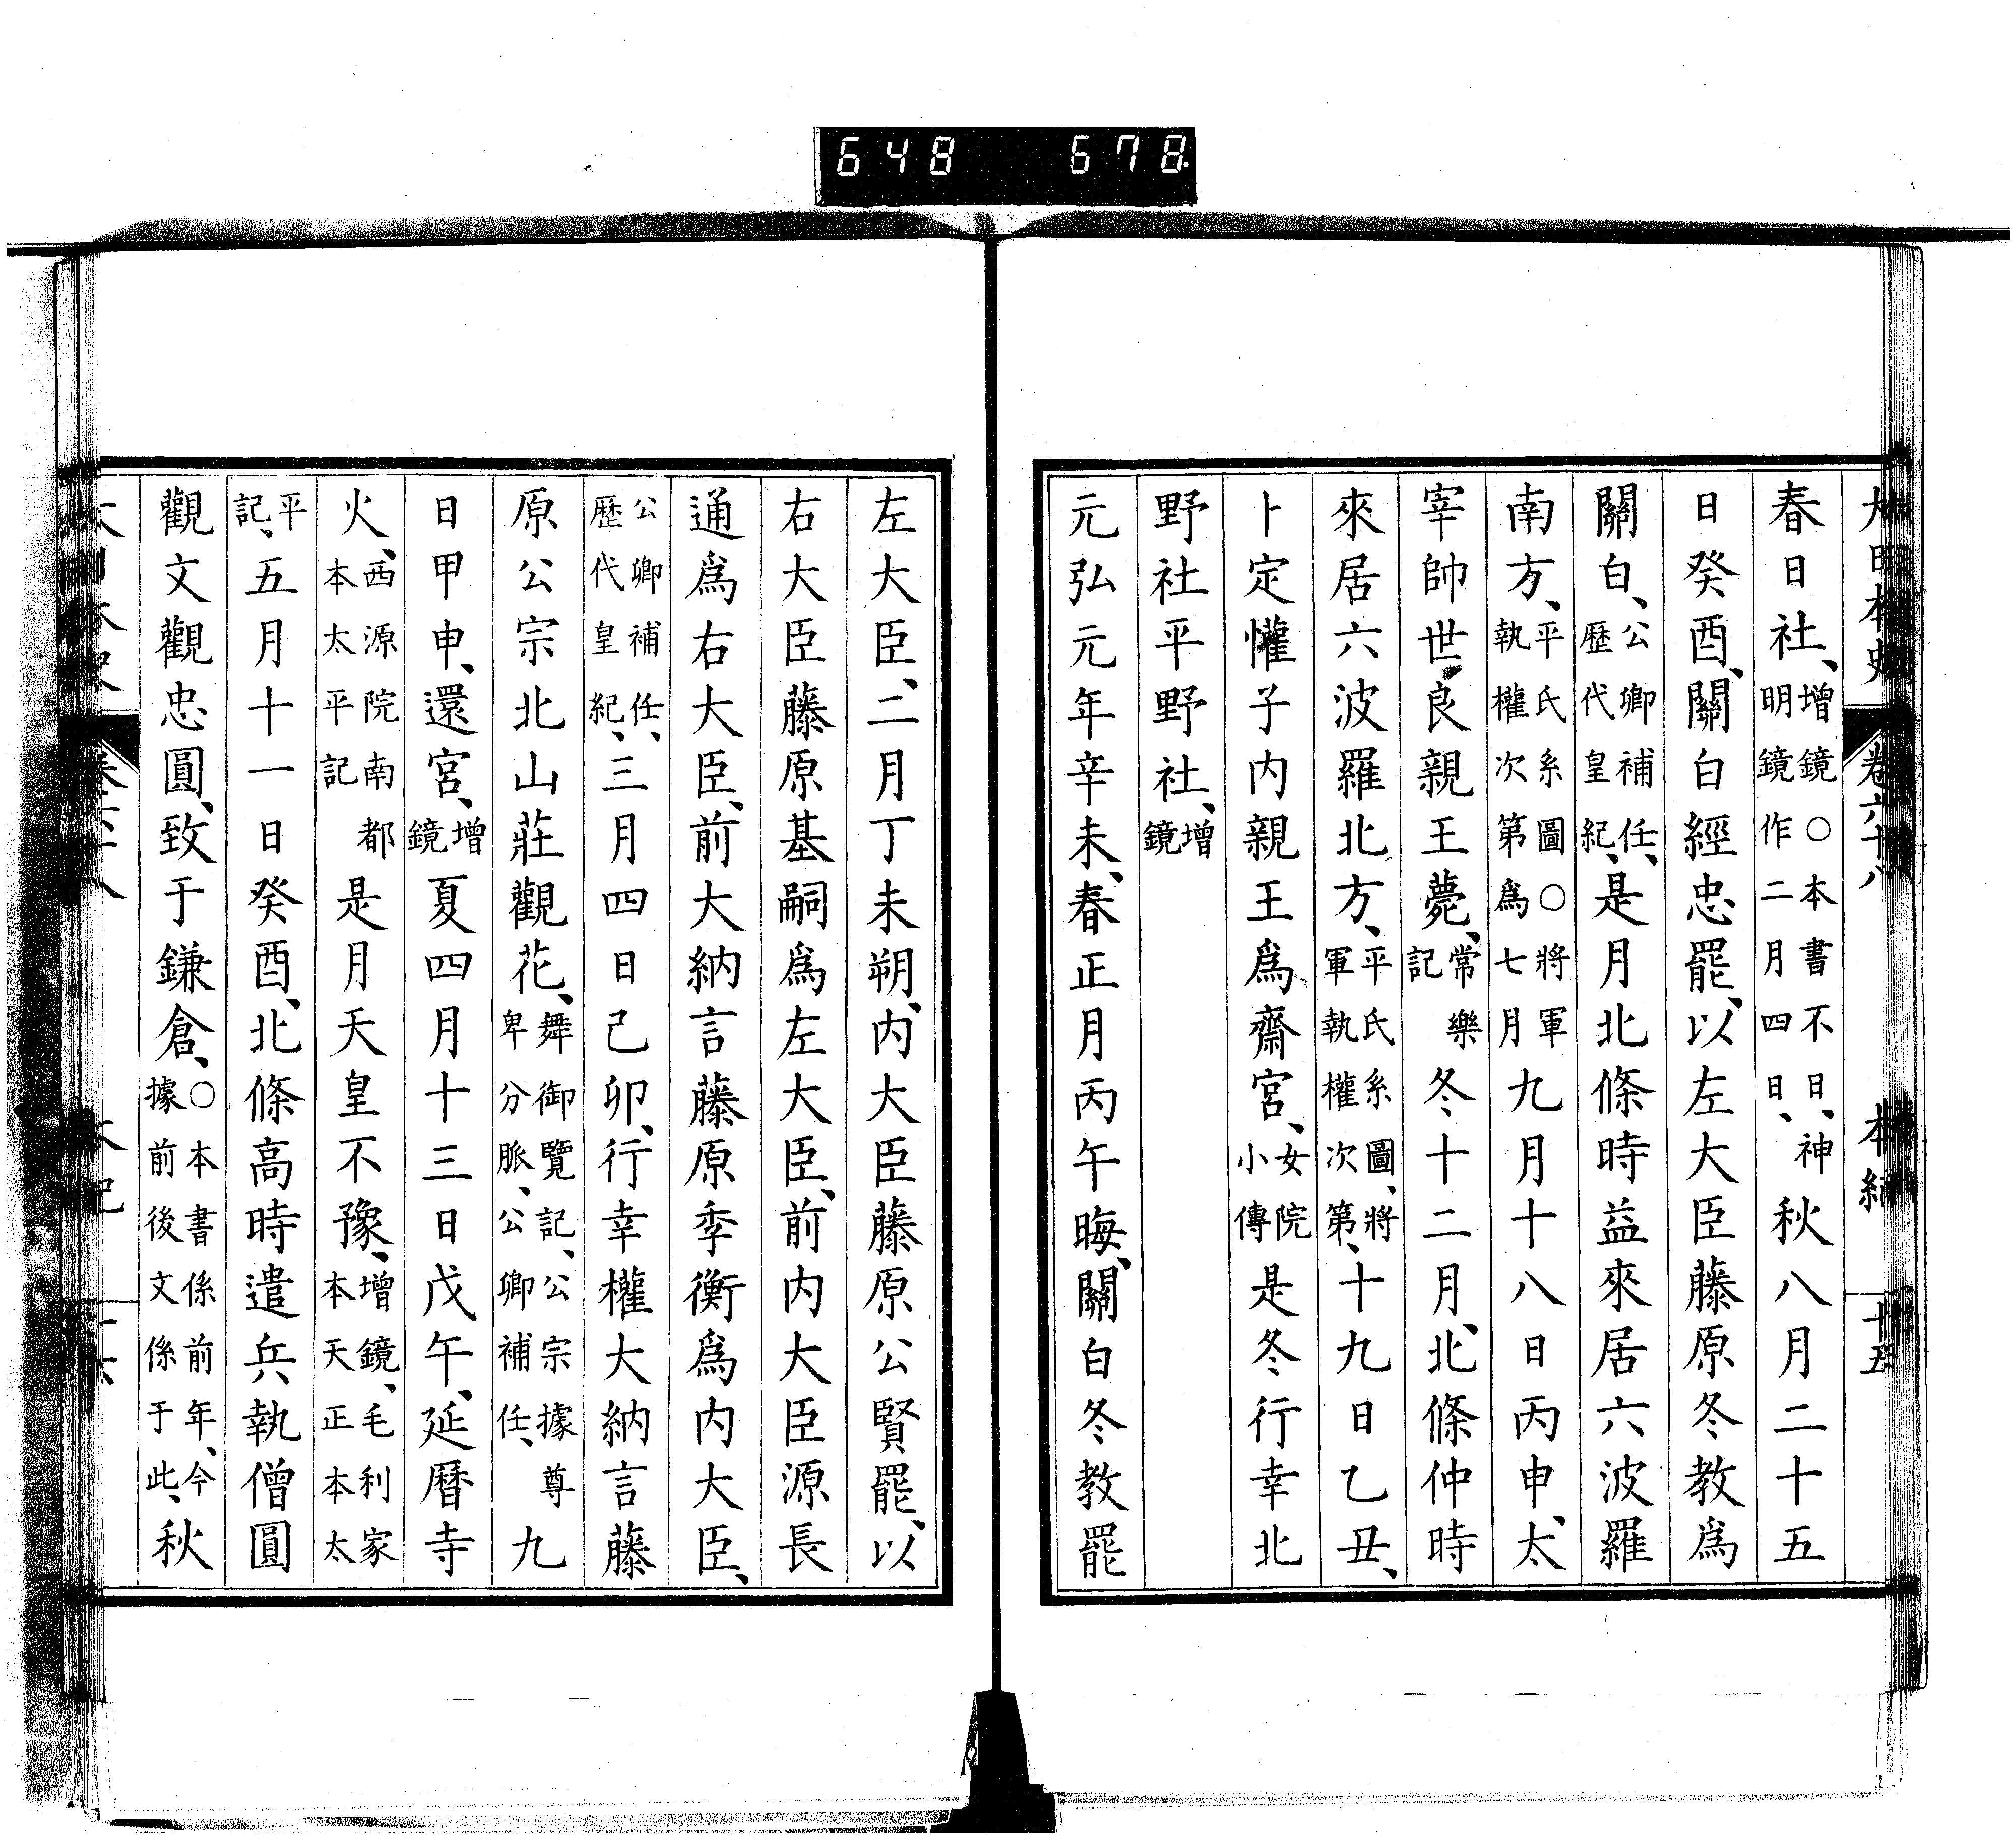 648 678
大日本史 卷六十八 本紀 十五
春日社、增鏡○本書不日、神明鏡作二月四日、秋八月二十五
日癸酉、關白經忠罷、以左大臣藤原冬教爲
關白、公卿補任、歷代皇紀、是月北條時益來居六波羅
南方、平氏系圖○將軍執權次第爲七月九月十八日丙申、太
宰帥世良親王薨、常樂記冬十二月、北條仲時
來居六波羅北方、平氏系圖、將軍執權次第、十九日乙丑、
卜定懽子內親王爲齋宮、女院小傳是冬行幸北
野社平野社、增鏡
元弘元年辛未、春正月丙午晦、關白冬教罷
左大臣、二月丁未朔、內大臣藤原公賢罷、以
右大臣藤原基嗣爲左大臣、前內大臣源長
通爲右大臣、前大納言藤原季衡爲內大臣、
公卿補任、歷代皇紀、三月四日己卯、行幸權大納言藤
原公宗北山莊觀花、舞御覽記、公宗據尊卑分脈、公卿補任、九
日甲申、還宮、增鏡夏四月十三日戊午、延曆寺
火、西源院南都本太平記是月天皇不豫、增鏡、毛利家本天正本太
平記、五月十一日癸酉、北條高時遣兵執僧圓
觀文觀忠圓、致于鎌倉、○本書係前年、今據前後文係于此、秋